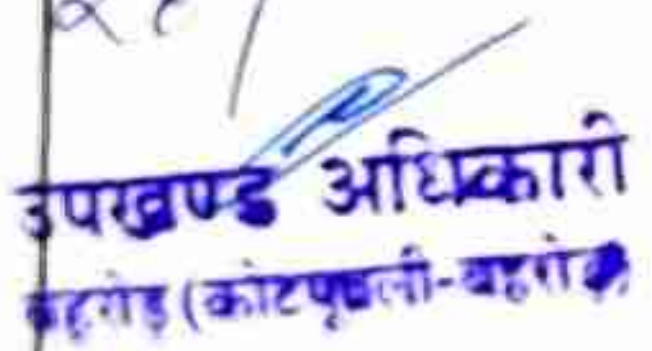 उपखण्ड अधिकारी
बहरोड़ (कोटपूतली-बहरोड़)